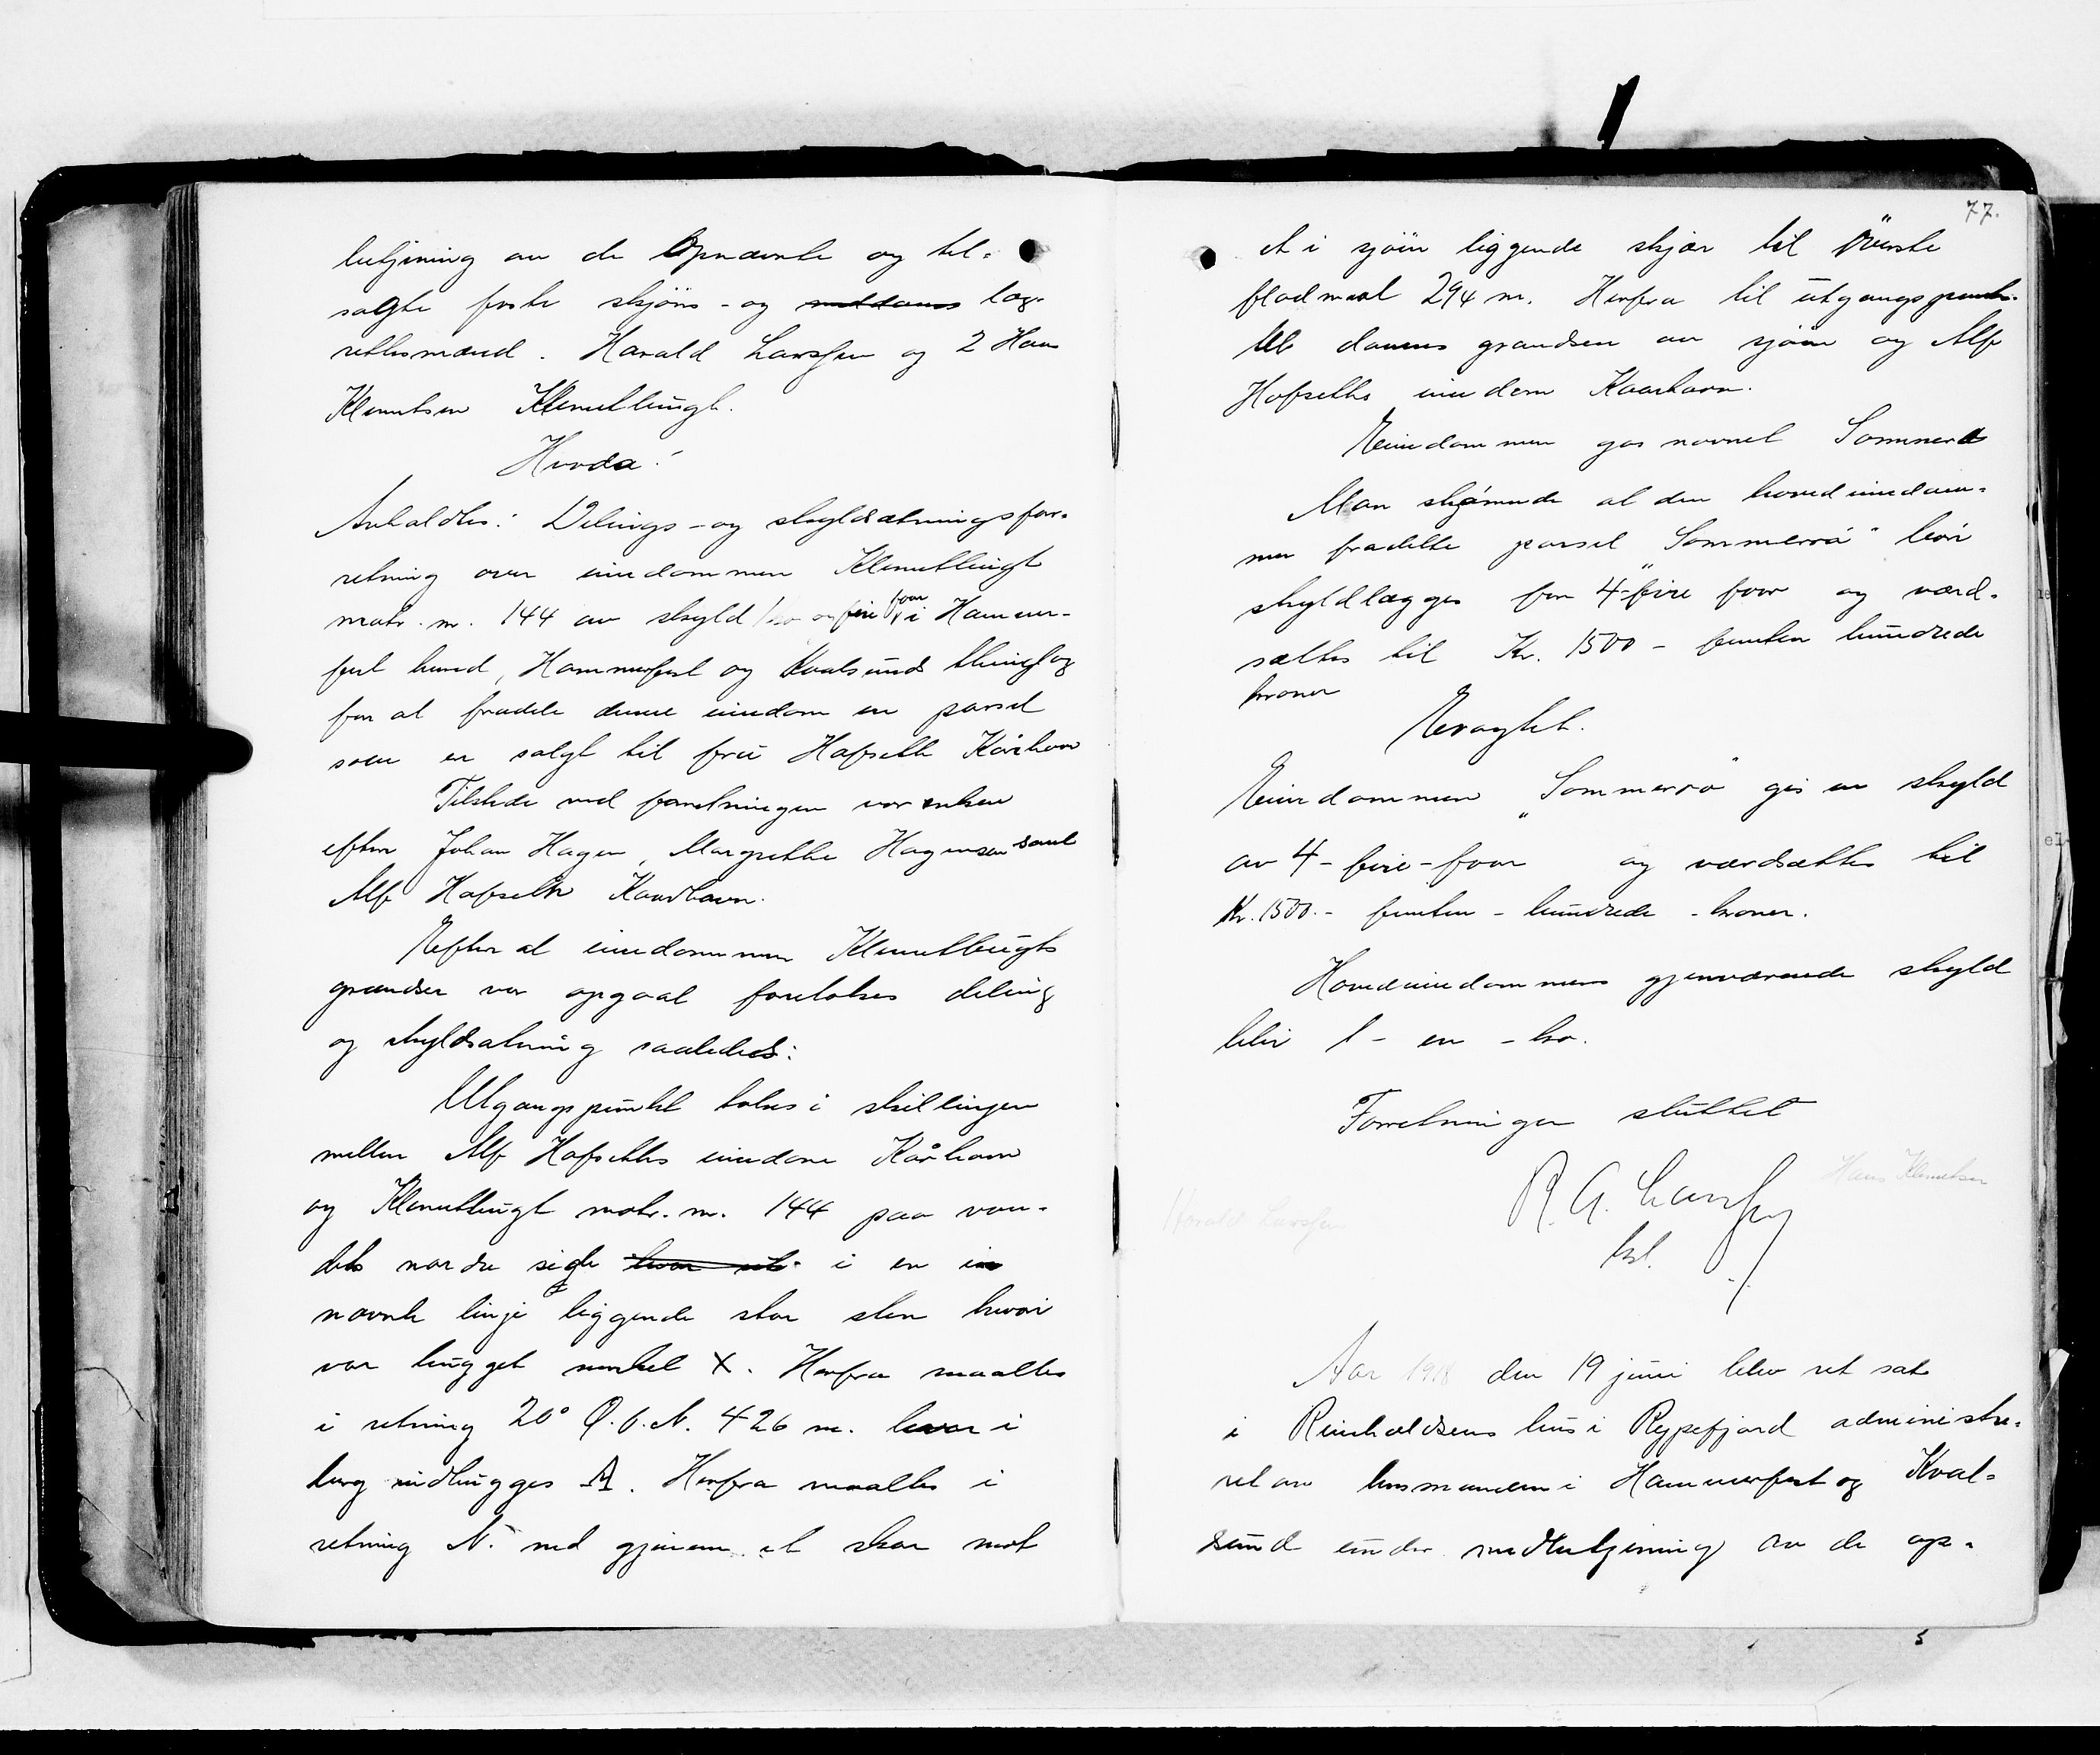 betjening av de opnævnte og til-
sagte faste skjøns- og meddoms lag-
rettesmænd. Harald Larssen og 2 Hans
Klemetsen Klemetbugt.
Hvorda!
Anholdtes: Delings- og skyldsætningsfor-
retning over eiendommen Klemetbugt
matr. nr. 144 av skyld 1 kro og fire øre i Hammer-
fest herred, Hammerfest og Kvalsunds thinglag
for at fradele denne eiendom en parsel
som er solgt til fru Hofseth Kårhavn
Tilstede ved forretningen var enken
efter Johan Hagen, Margrethe Hagensen samt
Alf Hofseth Kaarhavn.
Efter at eiendommen Klemetbugts
grændser var opgaat foretokes deling
og skyldsætning saaledes:
Utgangspunktet tokes i skillingen
mellem Alf Hofseths eiendom Kårhavn
og Klemetbugt matr. nr. 144 paa van-
dets nordre side hvor ut- i en i
nævnte linje liggende stor sten hvori
var hugget merket X. Herfra maaltes
i retning 20° Ø. f. N. 426 m. hvor i
berg indhugges A. Herfra maaltes i
retning N. ned gjennem et skar mot
77.
et i sjøen liggende skjær til øverste
flodmaal 294 m. Herfra til utgangspunk-
tet dannes grændsen av sjøen og Alf
Hofseths eiendom Kaarhavn.
Eiendommen gas navnet Sommerø
Man skjønnede at den hovedeiendom-
men fradelte parsel "Sommerro" bør
skyldlægges for 4-fire øre og værd-
sættes til Kr. 1500 - femten hundrede
kroner
Eragtet.
Eiendommen "Sommerro" gis en skyld
av 4-fire-øre og værdsættes til
Kr. 1500.- femten - hundrede - kroner.
Hovedeiendommens gjenværende skyld
blir 1 - en - kro.
Forretningen sluttet
Harald Larssen R. A. Larssen Hans Klemetsen
kst.
Aar 1918 den 19 juni blev ret sat
i Reinholdsens hus i Rypefjord administre-
ret av lensmanden i Hammerfest og Kval-
sund under medbetjening av de op-